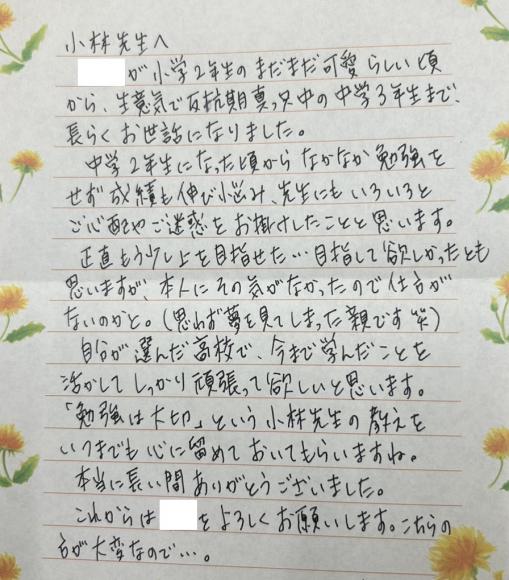 小林先生へ
が小学2年生のまだまだ可愛らしい頃
から、生意気で反抗期真っ只中の中学3年生まで、
長らくお世話になりました。
中学2年生になった頃からなかなか勉強を
せず成績も伸び悩み、先生にもいろいろと
ご心配やご迷惑をお掛けしたことと思います。
正直もう少し上を目指せた…目指して欲しかったとも
思いますが、本人にその気がなかったので仕方が
ないのかと。(思わず夢を見てしまった親です笑)
自分が選んだ高校で、今まで学んだことを
活かしてしっかり頑張って欲しいと思います。
「勉強は大切」という小林先生の教えを
いつまでも心に留めておいてもらいますね。
本当に長い間ありがとうございました。
これからは をよろしくお願いします。こちらの
方が大変なので…。